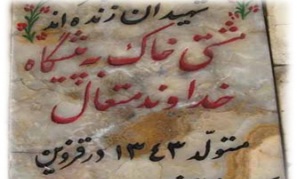 شهیدان زنده اند
مشتی خاک به پیشگاه
خداوند متعال
متولد ۱۳۴۳ در قزوین